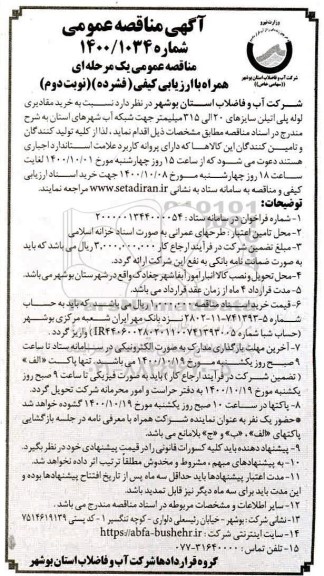 آگهی مناقصه عمومی
شماره ۱۴۰۰/۱۰۳۴
مناقصه عمومی یک مرحله ای
همراه با ارزیابی کیفی (فشرده) (نوبت دوم)
وزارت نیرو
شرکت آب و فاضلاب استان بوشهر
(سهامی خاص)
شرکت آب و فاضلاب استان بوشهر در نظر دارد نسبت به خرید مقادیری
لوله پلی اتیلن سایزهای ۲۰ الی ۳۱۵ میلیمتر جهت شبکه آب شهرهای استان به شرح
مندرج در اسناد مناقصه مطابق مشخصات ذیل اقدام نماید، لذا از کلیه تولید کنندگان
و تامین کنندگان این کالاها که دارای پروانه کاربرد علامت استاندارد اجباری
هستند دعوت می شود که از ساعت ۱۵ روز چهارشنبه مورخ ۱۴۰۰/۱۰/۰۱ لغایت
ساعت ۱۸ روز چهارشنبه مورخ ۱۴۰۰/۱۰/۰۸ جهت خرید اسناد ارزیابی
کیفی و مناقصه به سامانه ستاد به نشانی www.setadiran.ir مراجعه نمایند.
توضیحات:
۱- شماره فراخوان در سامانه ستاد: ۲۰۰۰۰۰۱۳۴۴۰۰۰۰۵۴
۲- محل تامین اعتبار: طرحهای عمرانی به صورت اسناد خزانه اسلامی
۳- مبلغ تضمین شرکت در فرآیند ارجاع کار ۳,۰۰۰,۰۰۰,۰۰۰ ریال می باشد که باید
به صورت ضمانت نامه بانکی به نفع این شرکت ارائه گردد.
۴- محل تحویل و نصب کالا انبار امور آبفا شهر چغادک واقع در شهرستان بوشهر می باشد.
۵- مدت قرارداد ۴ ماه از زمان عقد قرارداد می باشد.
۶- قیمت خرید اسناد مناقصه ۱,۰۰۰,۰۰۰ ریال می باشد که باید به حساب
شماره نزد بانک مهر ایران شعبه مرکزی بوشهر
(حساب شبا شماره) واریز گردد.
۷- آخرین مهلت بارگذاری مدارک به صورت الکترونیکی در سامانه ستاد تا ساعت
۹ صبح روز یکشنبه مورخ ۱۴۰۰/۱۰/۱۹ می باشد. تنها پاکت «الف»
( تضمین شرکت در فرآیند ارجاع کار ) باید به صورت فیزیکی تا ساعت ۹ صبح روز
یکشنبه مورخ ۱۴۰۰/۱۰/۱۹ به دفتر حراست و امور محرمانه شرکت تحویل گردد.
۸- پاکتها در ساعت ۱۰ صبح روز یکشنبه مورخ ۱۴۰۰/۱۰/۱۹ گشوده خواهد شد
*حضور یک نفر به عنوان نماینده شرکت همراه با معرفی نامه در جلسه بازگشایی
پاکتهای «الف»، «ب» و «ج» بلامانع می باشد.
۹- پیشنهاد دهنده باید کلیه کسورات قانونی را در قیمت پیشنهادی خود در نظر بگیرد.
۱۰- به پیشنهادهای مبهم، مشروط و مخدوش مطلقا ترتیب اثر داده نخواهد شد.
۱۱- مدت اعتبار پیشنهادها باید حداقل سه ماه پس از تاریخ افتتاح پیشنهادها بوده و
این مدت باید برای سه ماه دیگر نیز قابل تمدید باشد.
۱۲- سایر اطلاعات و مشخصات مربوطه در اسناد مناقصه مندرج می باشد.
۱۳- نشانی شرکت: بوشهر - خیابان رئیسعلی دلواری - کوچه تنگسیر ۱ - کد پستی ۷۵۱۴۶۱۹۱۳۹
۱۴- سایت اینترنتی شرکت: https://abfa-bushehr.ir
۱۵- تلفن تماس: ۰۷۷-۳۱۶۴۰۰۰۰
گروه قراردادها شرکت آب و فاضلاب استان بوشهر